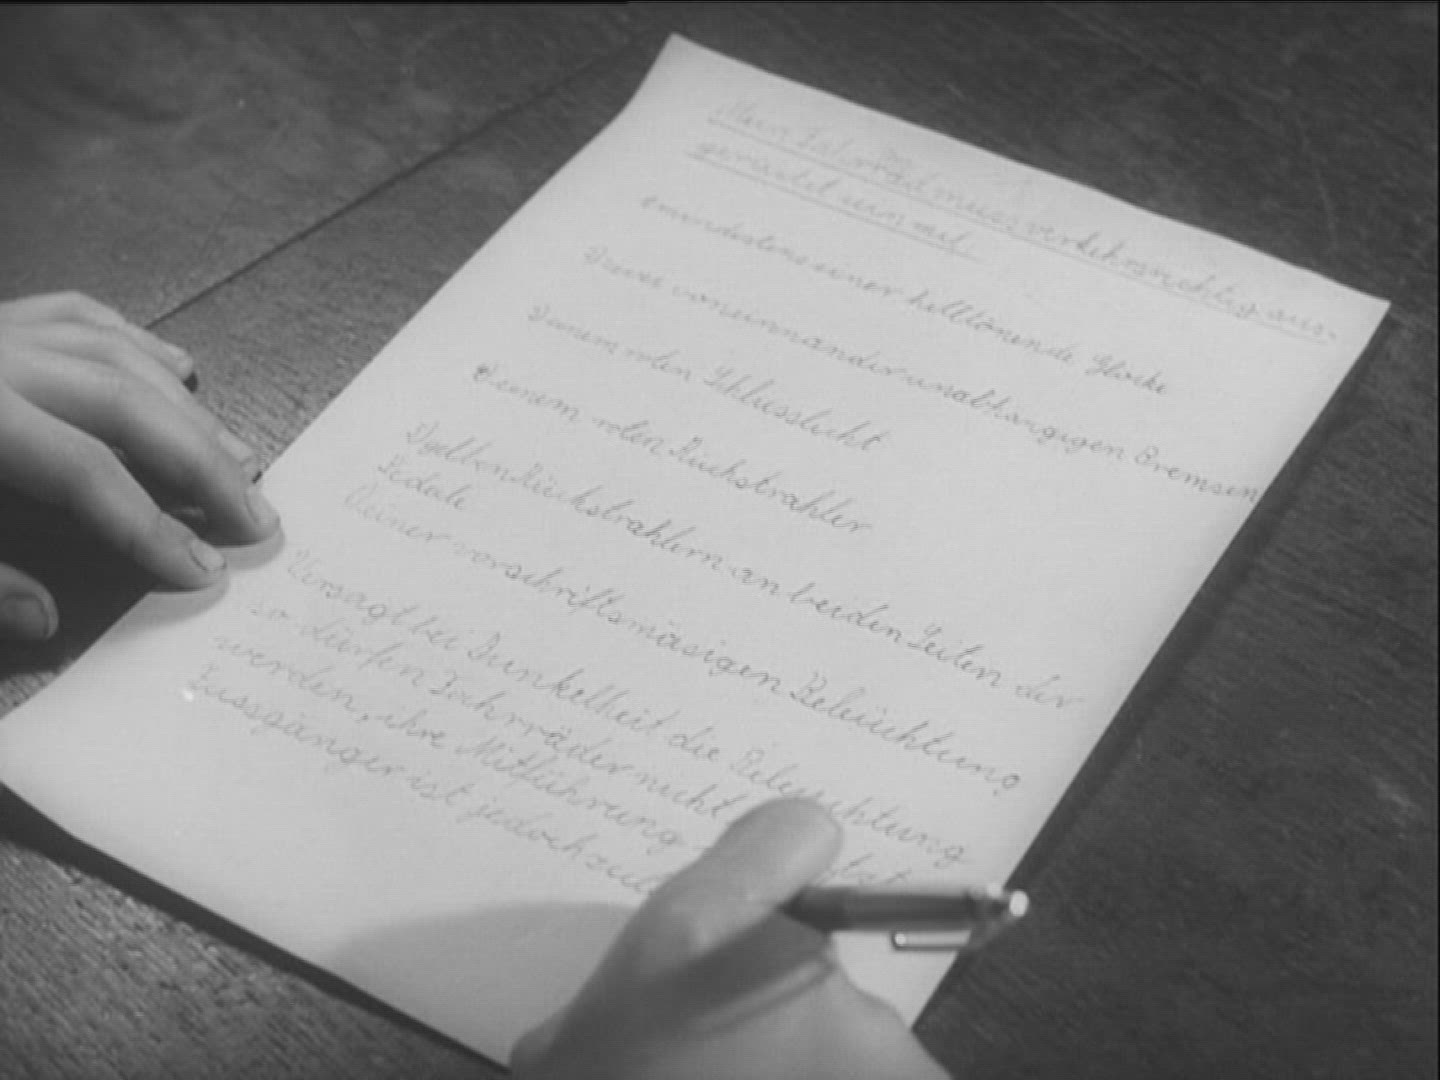 Mein Fahrrad muss verkehrsrichtig aus-
gerüstet sein mit:
mindestens einer helltönende Glocke
zwei voneinnander unabhängigen Bremsen
einem roten Schlusslicht
einem roten Rückstrahler
gelben Rückstrahlern an beiden Seiten der
Pedale
einer vorschriftsmäsigen Beleuchtung
Versagt bei Dunkelheit die Beleuchtung
so dürfen Fahrräder nicht
werden, ihre Mitführung
Fussgänger ist jedoch